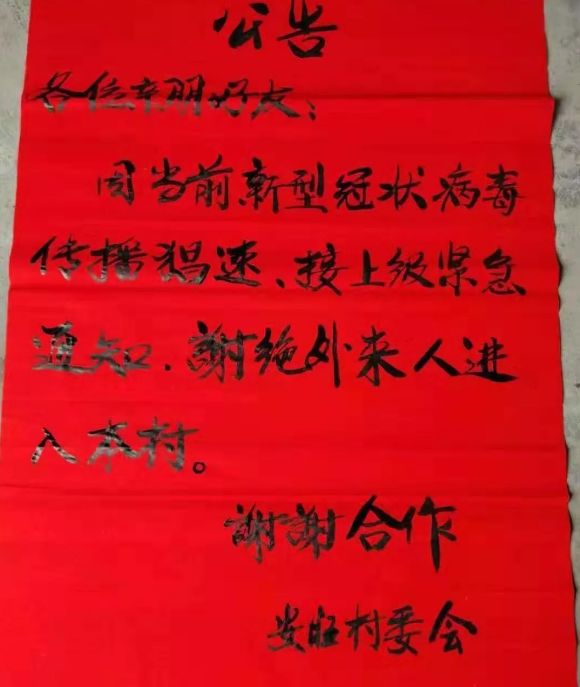 公告
各位亲朋好友：
因当前新型冠状病毒
传播猖速、接上级紧急
通知．謝绝外来人进
入本村。
謝謝合作
娄旺村委会